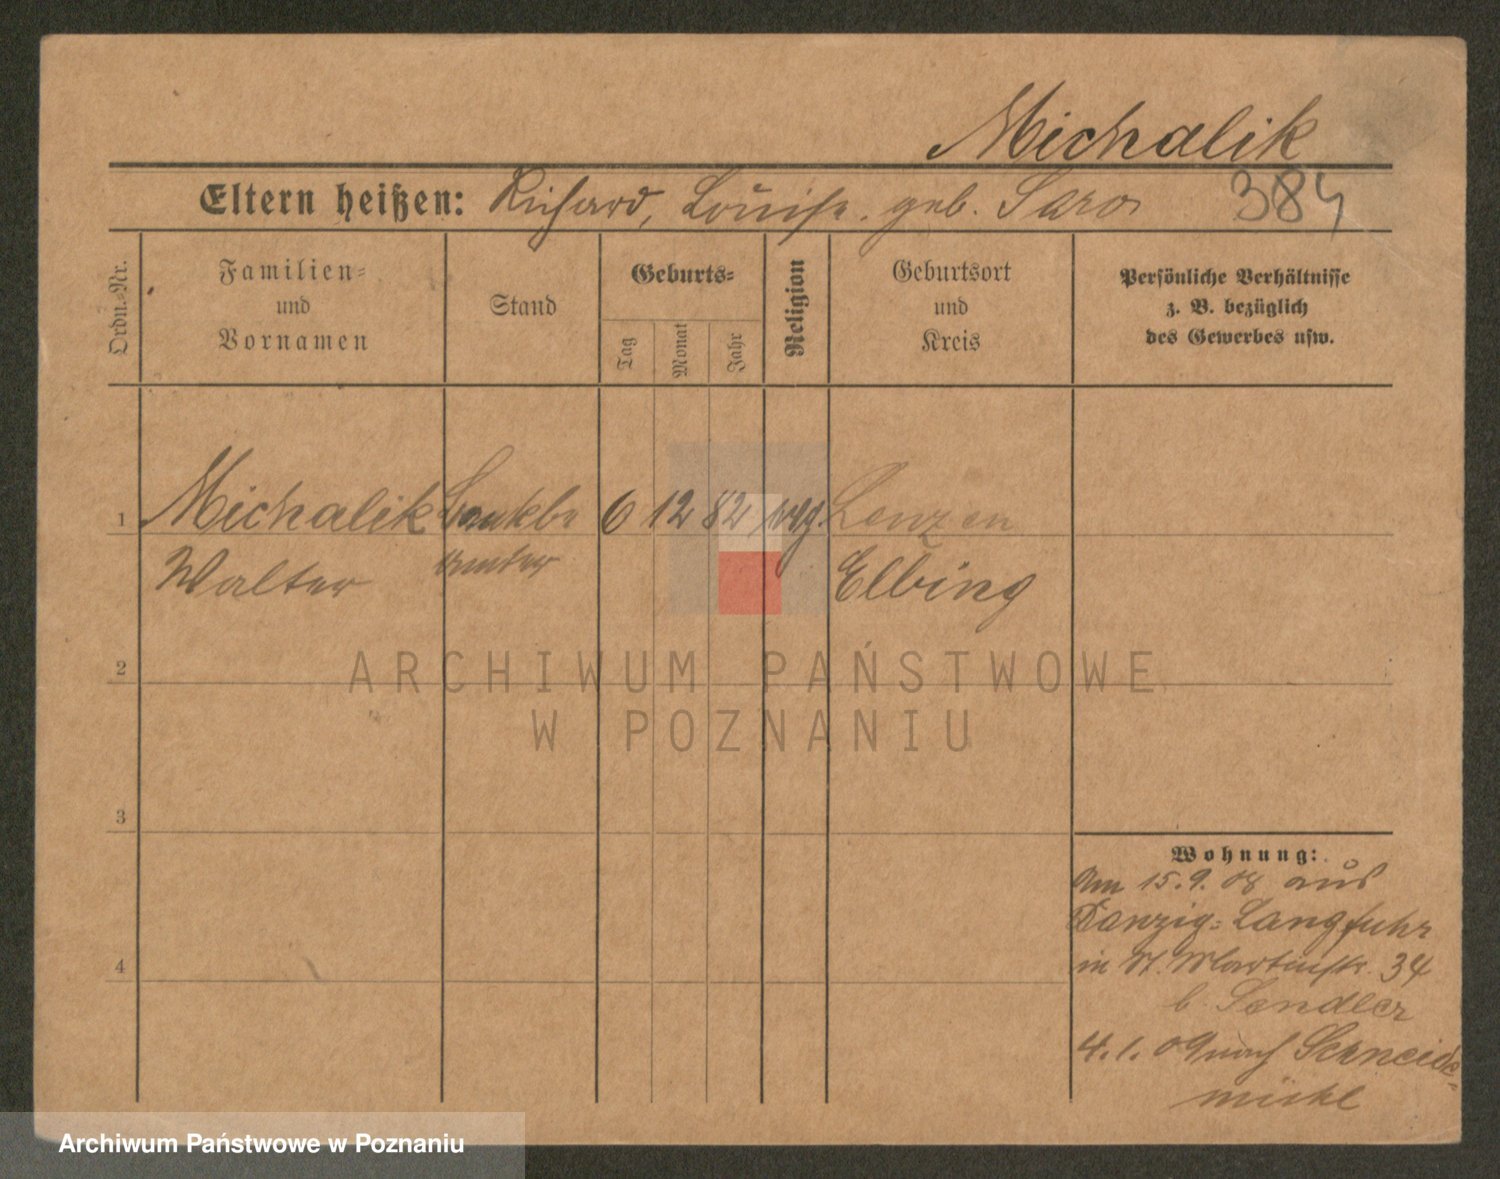 Michalik
Eltern heißen: Richard, Louise. geb. Saro
384
Ordn.-Nr.
Familien-
und
Vornamen
Stand
Geburts-
Tag
Monat
Jahr
Religion
Geburtsort
und
Kreis
Persönliche Verhältnisse
z. B. bezüglich
des Gewerbes usw.
1 Michalik Bankbe 6 12 82 evg. Lenzen
Walter amter Elbing
2
ARCHIWUM PAŃSTWOWE
W POZNANIU
3
Wohnung:
Am 15.9.08 aus
Danzig-Langfuhr
in St. Martinstr. 34
b. Sendler
4
4.1.09 nach Schneide-
mühl
Archiwum Państwowe w Poznaniu